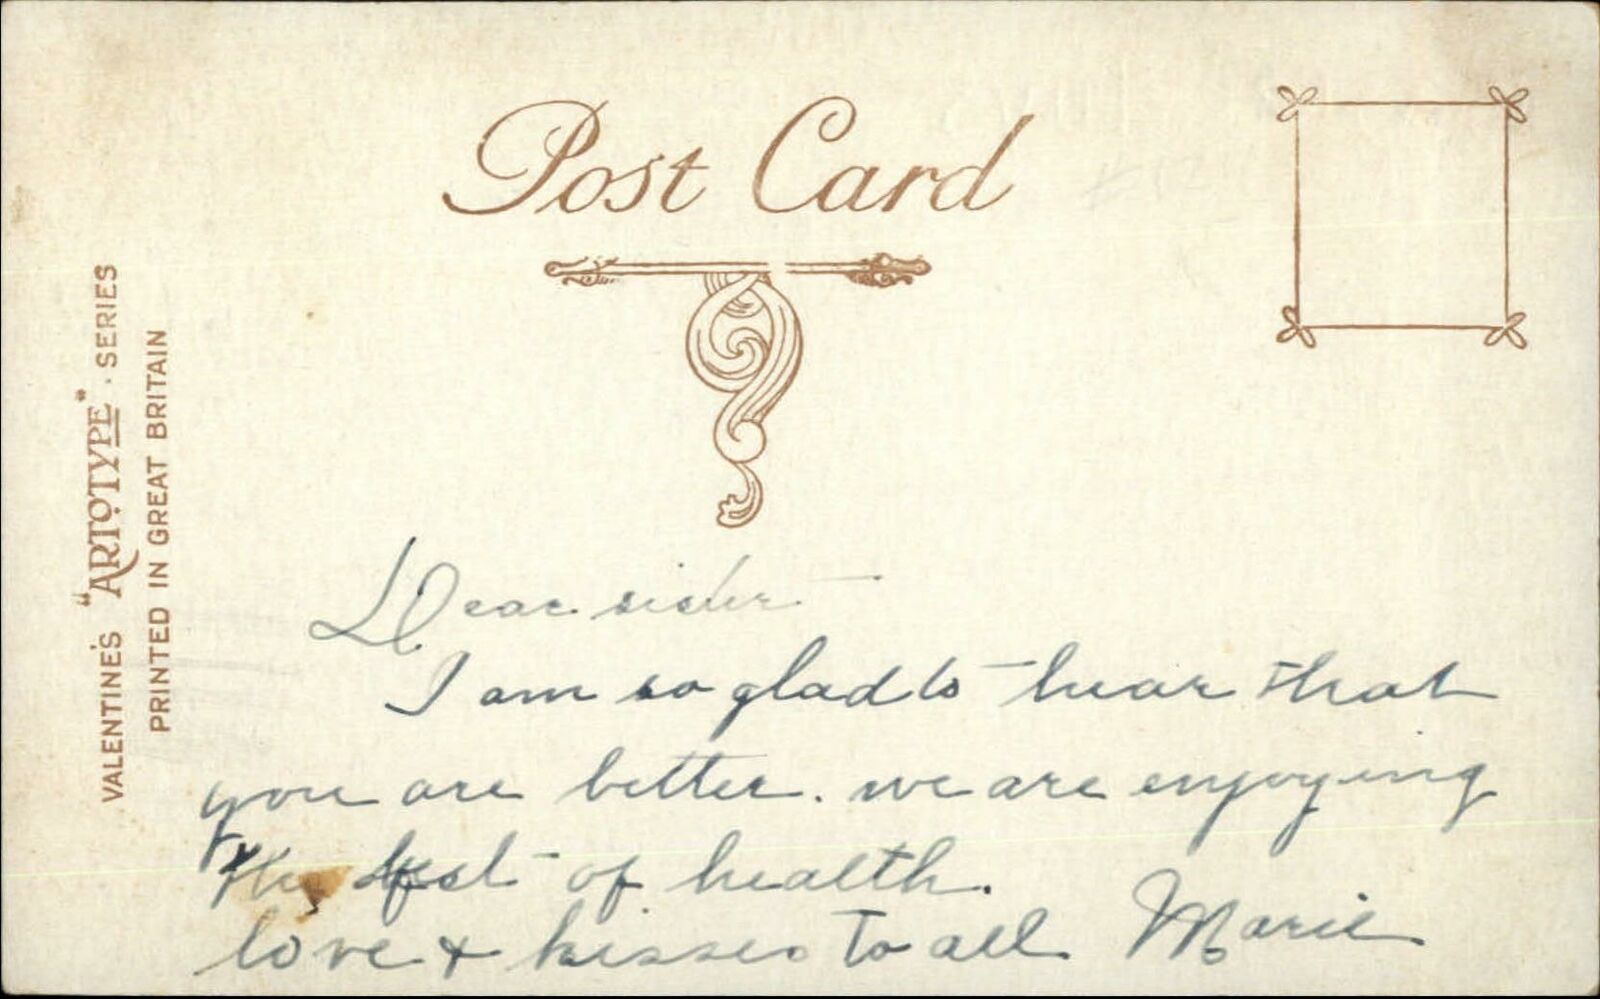 Post Card
VALENTINE'S "ARTOTYPE" SERIES
PRINTED IN GREAT BRITAIN
Dear sister
I am so glad to hear that
you are better. we are enjoying
the best of health.
love & kisses to all Marie